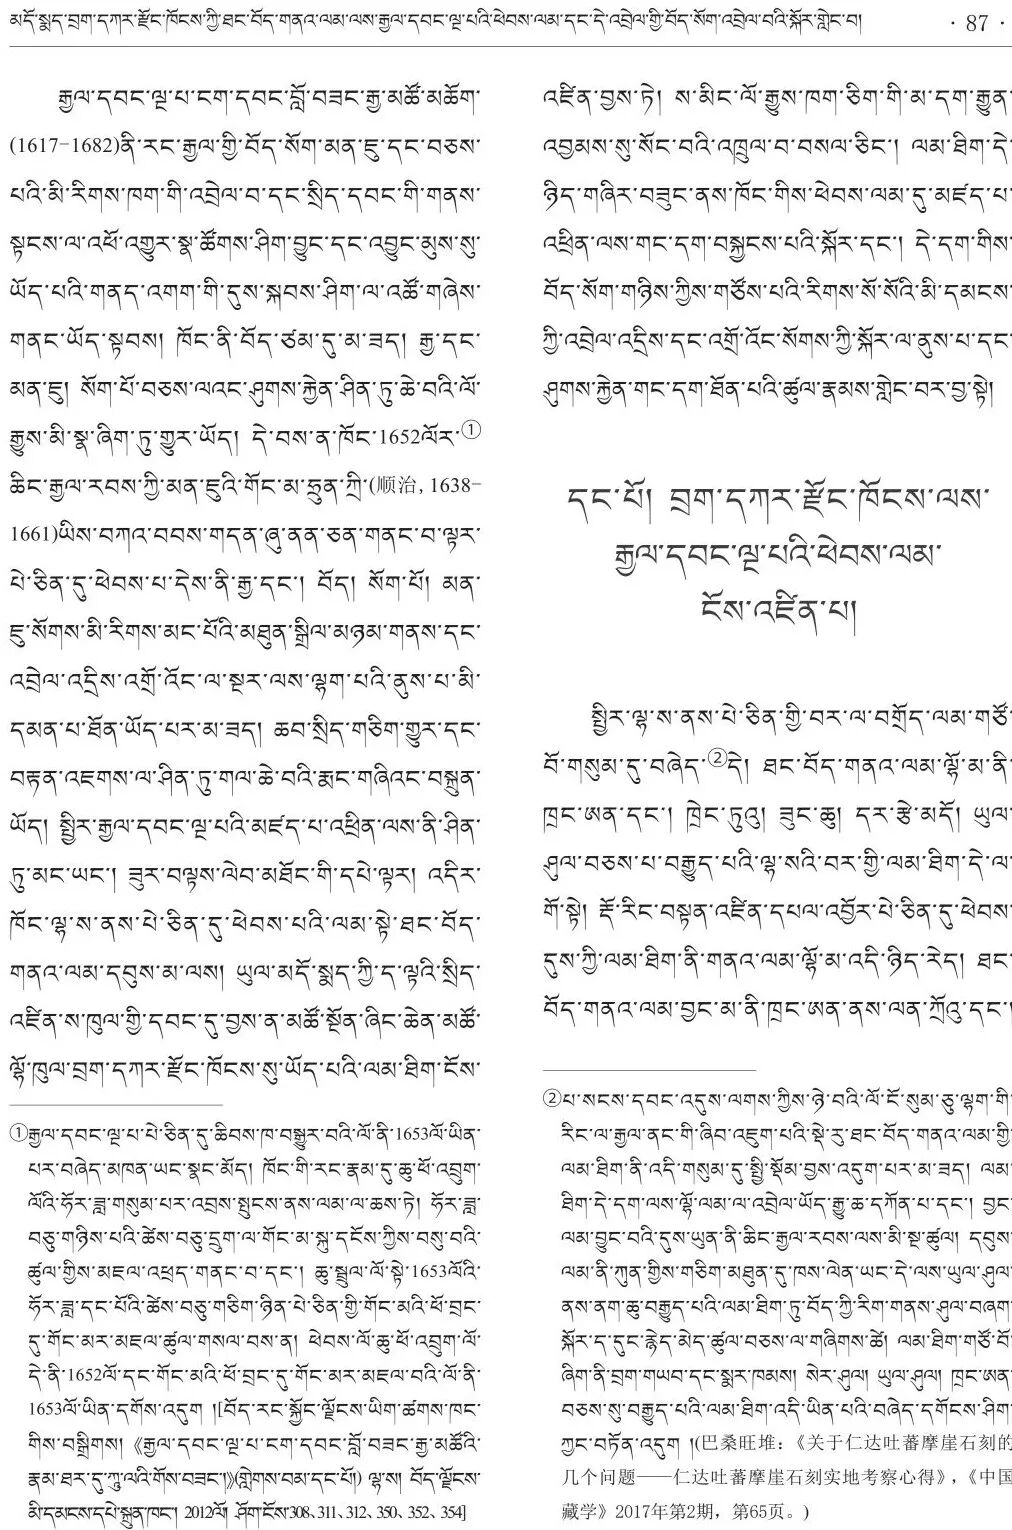 མདོ་སྨད་བྲག་དཀར་རྫོང་ཁོངས་ཀྱི་ཐང་བོད་གནའ་ལམ་ལས་རྒྱལ་དབང་ལྔ་པའི་ཕེབས་ལམ་དང་དེ་འབྲེལ་གྱི་བོད་སོག་འབྲེལ་བའི་སྐོར་གླེང་བ། · 87 ·
རྒྱལ་དབང་ལྔ་པ་ངག་དབང་བློ་བཟང་རྒྱ་མཚོ་མཆོག་
(1617-1682)ནི་རང་རྒྱལ་གྱི་བོད་སོག་མན་ཇུ་དང་བཅས་
པའི་མི་རིགས་ཁག་གི་འབྲེལ་བ་དང་སྲིད་དབང་གི་གནས་
སྟངས་ལ་འཕོ་འགྱུར་སྣ་ཚོགས་ཤིག་བྱུང་དང་འབྱུང་མུས་སུ་
ཡོད་པའི་གནད་འགག་གི་དུས་སྐབས་ཤིག་ལ་འཚོ་གཞེས་
གནང་ཡོད་སྟབས། ཁོང་ནི་བོད་ཙམ་དུ་མ་ཟད། རྒྱ་དང་
མན་ཇུ། སོག་པོ་བཅས་ལའང་ཤུགས་རྐྱེན་ཤིན་ཏུ་ཆེ་བའི་ལོ་
རྒྱུས་མི་སྣ་ཞིག་ཏུ་གྱུར་ཡོད། དེ་བས་ན་ཁོང་1652ལོར་①
ཆིང་རྒྱལ་རབས་ཀྱི་མན་ཇུའི་གོང་མ་ཧྲུན་ཀྲི་(顺治, 1638-
1661)ཡིས་བཀའ་བབས་གདན་ཞུ་ནན་ཅན་གནང་བ་ལྟར་
པེ་ཅིན་དུ་ཕེབས་པ་དེས་ནི་རྒྱ་དང་། བོད། སོག་པོ། མན་
ཇུ་སོགས་མི་རིགས་མང་པོའི་མཐུན་སྒྲིལ་མཉམ་གནས་དང་
འབྲེལ་འདྲིས་འགྲོ་འོང་ལ་སྔར་ལས་ལྷག་པའི་ནུས་པ་མི་
དམན་པ་ཐོན་ཡོད་པར་མ་ཟད། ཆབ་སྲིད་གཅིག་གྱུར་དང་
བརྟན་འཇགས་ལ་ཤིན་ཏུ་གལ་ཆེ་བའི་རྨང་གཞིའང་བསྐྲུན་
ཡོད། སྤྱིར་རྒྱལ་དབང་ལྔ་པའི་མཛད་པ་འཕྲིན་ལས་ནི་ཤིན་
ཏུ་མང་ཡང་། ཟུར་བལྟས་ལེབ་མཐོང་གི་དཔེ་ལྟར། འདིར་
ཁོང་ལྷ་ས་ནས་པེ་ཅིན་དུ་ཕེབས་པའི་ལམ་སྟེ་ཐང་བོད་
གནའ་ལམ་དབུས་མ་ལས། ཡུལ་མདོ་སྨད་ཀྱི་ད་ལྟའི་སྲིད་
འཛིན་ས་ཁུལ་གྱི་དབང་དུ་བྱས་ན་མཚོ་སྔོན་ཞིང་ཆེན་མཚོ་
ལྷོ་ཁུལ་བྲག་དཀར་རྫོང་ཁོངས་སུ་ཡོད་པའི་ལམ་ཐིག་ངོས་
①རྒྱལ་དབང་ལྔ་པ་པེ་ཅིན་དུ་ཆིབས་ཁ་བསྒྱུར་བའི་ལོ་ནི་1653ལོ་ཡིན་
པར་བཞེད་མཁན་ཡང་སྣང་མོད། ཁོང་གི་རང་རྣམ་དུ་ཆུ་ཕོ་འབྲུག་
ལོའི་ཧོར་ཟླ་གསུམ་པར་འབྲས་སྤུངས་ནས་ལམ་ལ་ཆས་ཏེ། ཧོར་ཟླ་
བཅུ་གཉིས་པའི་ཚེས་བཅུ་དྲུག་ལ་གོང་མ་སྐུ་དངོས་ཀྱིས་བསུ་བའི་
ཚུལ་གྱིས་མཇལ་འཕྲད་གནང་བ་དང་། ཆུ་སྦྲུལ་ལོ་སྟེ་1653ལོའི་
ཧོར་ཟླ་དང་པོའི་ཚེས་བཅུ་གཅིག་ཉིན་པེ་ཅིན་གྱི་གོང་མའི་ཕོ་བྲང་
དུ་གོང་མར་མཇལ་ཚུལ་གསལ་བས་ན། ཕེབས་ལོ་ཆུ་ཕོ་འབྲུག་ལོ་
དེ་ནི་1652ལོ་དང་གོང་མའི་ཕོ་བྲང་དུ་གོང་མར་མཇལ་བའི་ལོ་ནི་
1653ལོ་ཡིན་དགོས་འདུག །[བོད་རང་སྐྱོང་ལྗོངས་ཡིག་ཚགས་ཁང་
གིས་བསྒྲིགས། 《རྒྱལ་དབང་ལྔ་པ་ངག་དབང་བློ་བཟང་རྒྱ་མཚོའི་
རྣམ་ཐར་དུ་ཀཱུ་ལའི་གོས་བཟང་།》(གླེགས་བམ་དང་པོ།) ལྷ་ས། བོད་ལྗོངས་
མི་དམངས་དཔེ་སྐྲུན་ཁང་། 2012ལོ། ཤོག་ངོས་308、311、312、350、352、354]
འཛིན་བྱས་ཏེ། ས་མིང་ལོ་རྒྱུས་ཁག་ཅིག་གི་མ་དག་རྒྱུན་
འབྱམས་སུ་སོང་བའི་འཁྲུལ་བ་བསལ་ཅིང་། ལམ་ཐིག་དེ་
ཉིད་གཞིར་བཟུང་ནས་ཁོང་གིས་ཕེབས་ལམ་དུ་མཛད་པ་
འཕྲིན་ལས་གང་དག་བསྐྱངས་པའི་སྐོར་དང་། དེ་དག་གིས་
བོད་སོག་གཉིས་ཀྱིས་གཙོས་པའི་རིགས་སོ་སོའི་མི་དམངས་
ཀྱི་འབྲེལ་འདྲིས་དང་འགྲོ་འོང་སོགས་ཀྱི་སྐོར་ལ་ནུས་པ་དང་
ཤུགས་རྐྱེན་གང་དག་ཐོན་པའི་ཚུལ་རྣམས་གླེང་བར་བྱ་སྟེ།
དང་པོ། བྲག་དཀར་རྫོང་ཁོངས་ལས་
རྒྱལ་དབང་ལྔ་པའི་ཕེབས་ལམ་
ངོས་འཛིན་པ།
སྤྱིར་ལྷ་ས་ནས་པེ་ཅིན་གྱི་བར་ལ་བགྲོད་ལམ་གཙོ་
བོ་གསུམ་དུ་བཞེད་②དེ། ཐང་བོད་གནའ་ལམ་ལྷོ་མ་ནི་
ཁྲང་ཨན་དང་། ཁྲེང་ཏུའུ། ཟུང་ཆུ། དར་རྩེ་མདོ། ཡུལ་
ཤུལ་བཅས་པ་བརྒྱུད་པའི་ལྷ་སའི་བར་གྱི་ལམ་ཐིག་དེ་ལ་
གོ་སྟེ། རྡོ་རིང་བསྟན་འཛིན་དཔལ་འབྱོར་པེ་ཅིན་དུ་ཕེབས་
དུས་ཀྱི་ལམ་ཐིག་ནི་གནའ་ལམ་ལྷོ་མ་འདི་ཉིད་རེད། ཐང་
བོད་གནའ་ལམ་བྱང་མ་ནི་ཁྲང་ཨན་ནས་ལན་ཀྲོའུ་དང་།
②པ་སངས་དབང་འདུས་ལགས་ཀྱིས་ཉེ་བའི་ལོ་ངོ་སུམ་ཅུ་ལྷག་གི་
རིང་ལ་རྒྱལ་ནང་གི་ཞིབ་འཇུག་པའི་སྡེ་རུ་ཐང་བོད་གནའ་ལམ་གྱི་
ལམ་ཐིག་ནི་འདི་གསུམ་དུ་སྤྱི་སྡོམ་བྱས་འདུག་པར་མ་ཟད། ལམ་
ཐིག་དེ་དག་ལས་ལྷོ་ལམ་ལ་འབྲེལ་ཡོད་རྒྱུ་ཆ་དཀོན་པ་དང་། བྱང་
ལམ་བྱུང་བའི་དུས་ཡུན་ནི་ཆིང་རྒྱལ་རབས་ལས་མི་སྔ་ཚུལ། དབུས་
ལམ་ནི་ཀུན་གྱིས་གཅིག་མཐུན་དུ་ཁས་ལེན་ཡང་དེ་ལས་ཡུལ་ཤུལ་
ནས་ནག་ཆུ་བརྒྱུད་པའི་ལམ་ཐིག་ཏུ་བོད་ཀྱི་རིག་གནས་ཤུལ་བཞག་
སྐོར་ད་དུང་རྙེད་མེད་ཚུལ་བཅས་ལ་གཞིགས་ཚེ། ལམ་ཐིག་གཙོ་བོ་
ཞིག་ནི་བྲག་གཡབ་དང་སྨར་ཁམས། སེར་ཤུལ། ཡུལ་ཤུལ། ཁྲང་ཨན་
བཅས་སུ་བརྒྱུད་པའི་ལམ་ཐིག་འདི་ཡིན་པའི་བཞེད་དགོངས་ཤིག་
ཀྱང་བཏོན་འདུག །(巴桑旺堆：《关于仁达吐蕃摩崖石刻的
几个问题——仁达吐蕃摩崖石刻实地考察心得》,《中国
藏学》2017年第2期，第65页。)